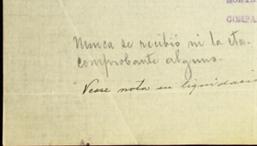 COMPA
Nunca se recibió ni la cta.
comprobante alguno.
Vease nota en liquidació